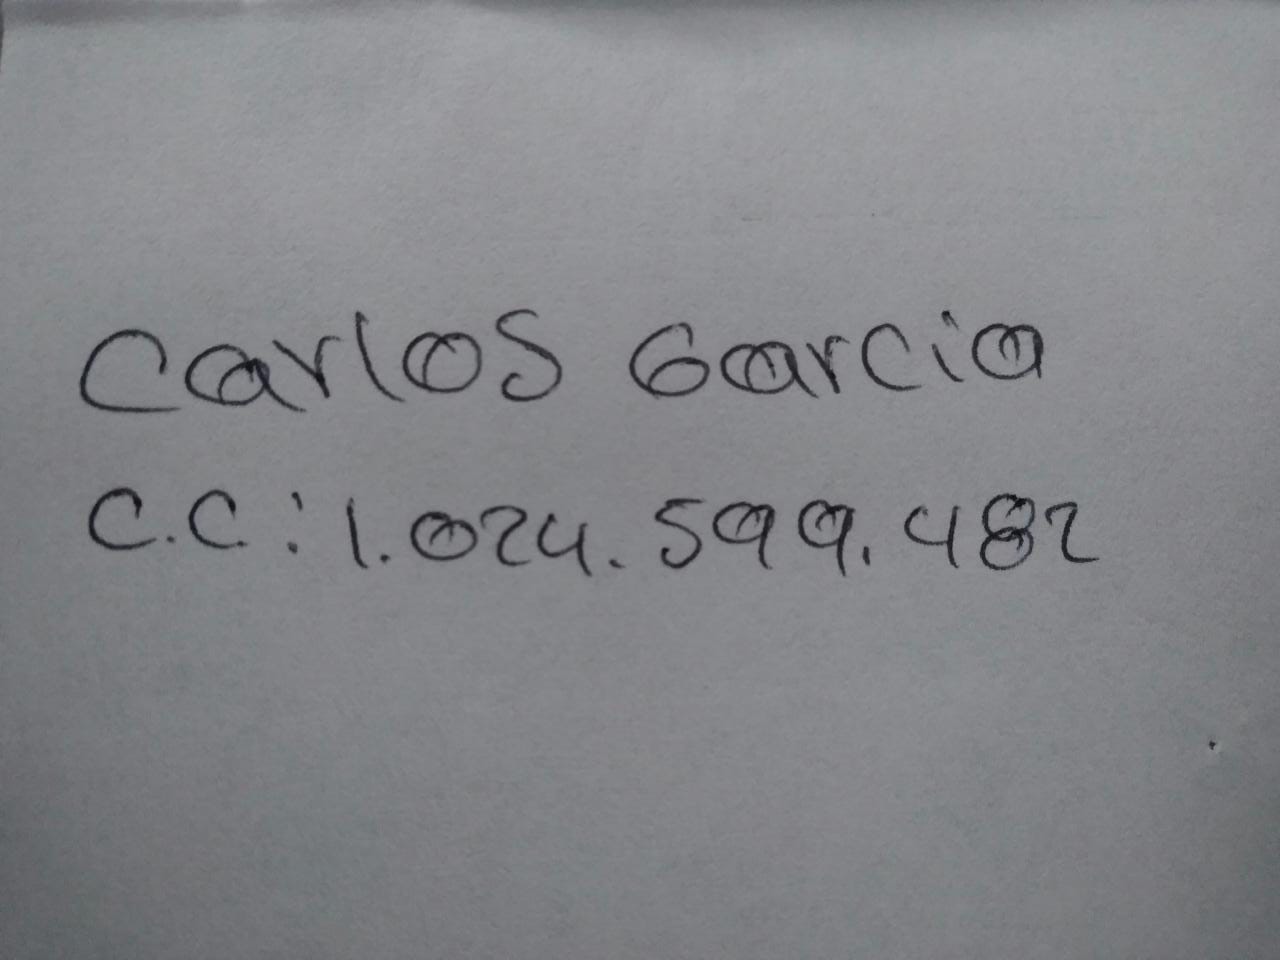 Carlos Garcia
C.C.: 1.024.599.482